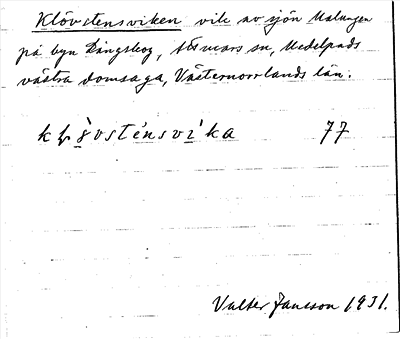 Klövstensviken vik av sjön Malungen
på byn Dingsbog, Attmars sn, Medelpads
västra domsaga, Västernorrlands län.
77
Valter Jansson 1931.